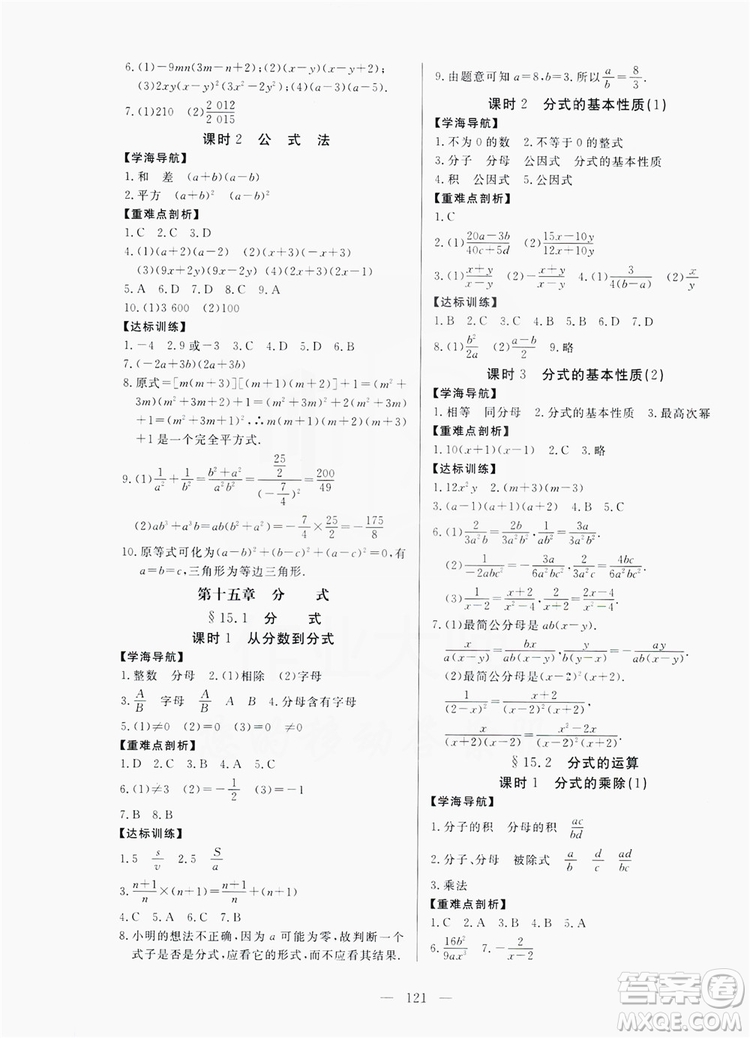 6.(1)-9mn(3m-n+2);(2)(x-y)(x-y);
(3)2xy(x-y)²(3)(x-y)(3a-5).
7.(1)210 (2)2 012/2 015
课时2 公 式 法
【学海导航】
1.和 差 (a+b)(a-b)
2.平方 (a+b)² (a-b)²
【重难点剖析】
1.C 2.C 3.D
4.(1)(a+2)(a-2) (2)(-x+3)(x+3)
(3)(9x+2y)(9x-2y)
5.A 6.D 7.B 8.C 9.A
10.(1)3 600 (2)100
【达标训练】
1.-4 2.9或-3 3.D 4.B 5.C 6.D
7.(-2a+3b)(2a+3b)
8.原式=[m(m+3)][(m+1)(m+2)]+1=(m²+
3m)(m²+3m+2)+1=(m²+3m)²+2(m²+
3m)+1=(m²+3m+1)²,∴m(m+1)(m+2)(m+3)
+1是一个完全平方式.
9.(1)1/a²+1/b²=(b²+a²)/(a²b²)=(25/2)/(-7/4)²=200/49
(2)ab³+a³b=ab(b²+a²)=-7/4×25/2=-175/8
10.原等式可化为(a-b)²+(b-c)²+(a-c)²=0,有
a=b=c,三角形为等边三角形.
第十五章 分 式
§15.1 分 式
课时1 从分数到分式
【学海导航】
1.整数 分母 2.(1)相除 (2)字母
3.A/B 字母 A A/B 分母 含有字母
5.(1)≠0 (2)=0 (3)=0 ≠0
【重难点剖析】
1.C 2.A 3.D 4.C 5.B
6.(1)≠3 (2)≠±2 (3)-1/2 (4)-1
7.B 8.B
【达标训练】
1.5 s/v 2.5 S/a
3.(n+1)/n×(n+1)=(n+1)/n+(n+1)
4.C 5.C 6.D 7.A
8.小明的想法不正确,因为a可能为零,故判断一个
式子是否是分式,应看它的形式,而不应看其结果.
9.由题意可知a=8,b=3.所以a/b=8/3.
课时2 分式的基本性质(1)
【学海导航】
1.不为0的数 2.不等于0的整式
3.分子 分母 公因式 分式的基本性质
4.积 公因式 5.公因式
【重难点剖析】
1.C
2.(1)(20a-3b)/(40c+5d) (2)(15x-10y)/(x+10y)
3.(1)(x+y)/(x-y) (2)-x/y 4.(1)3/(4(b-a)) (2)(x+y)/(x-y)
【达标训练】
1.D 2.D 3.B 4.D 5.D 6.D 7.B
8.(1)b²/2a (2)(a-b)/2 9.略
课时3 分式的基本性质(2)
【学海导航】
1.相等 同分母 2.分式的基本性质 3.最高次幂
【重难点剖析】
1.10(x+1)(x-1) 2.C 3.略
【达标训练】
1.12x²y 2.(m+3)(m-3)
3.(a-1)(a+1)² 4.B 5.C
6.(1)2/(3a²b)=2b/(3a²b²),1/(ab²)=3a/(3a²b²).
(2)1/(-2abc)=-3a/(6a²bc),2/(3a²c)=4b/(6a²bc).
(3)1/(x-2)=(x+2)/(x²-4),2/(4-x²)=-2/(x²-4).
7.(1)最简公分母是ab(x-y).
x/(a(x-y))=bx/(ab(x-y)),y/(b(y-x))=-ay/(ab(x-y)).
(2)最简公分母是(x+2)(x-2)².
1/(2-x)²=(x+2)/((x+2)(x-2)²),
x/(x²-4)=x(x-2)/((x+2)(x-2)²).
§15.2 分式的运算
课时1 分式的乘除(1)
【学海导航】
1.分子的积 分母的积 ac/bd
2.分子、分母 被除式 a/b d/c ad/bc
3.乘法
【重难点剖析】
1.C 2.A
6.16b²/9ax³
— 121 —